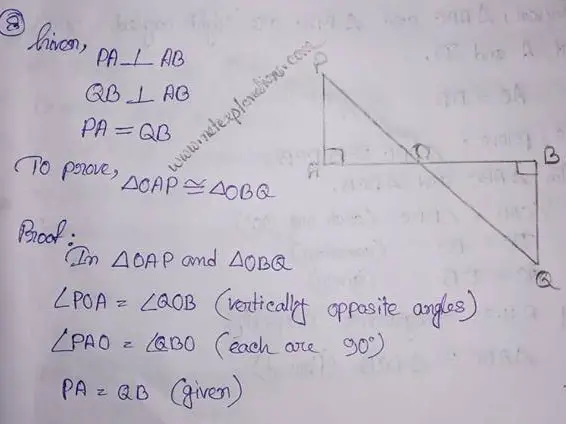 8
Given,
PA ⊥ AB
QB ⊥ AB
PA = QB
To prove,
△OAP ≅ △OBQ
www.netexplanations.com
P
A
O
B
Q
Proof:
In △OAP and △OBQ
∠POA = ∠QOB (vertically opposite angles)
∠PAO = ∠QBO (each are 90°)
PA = QB (given)